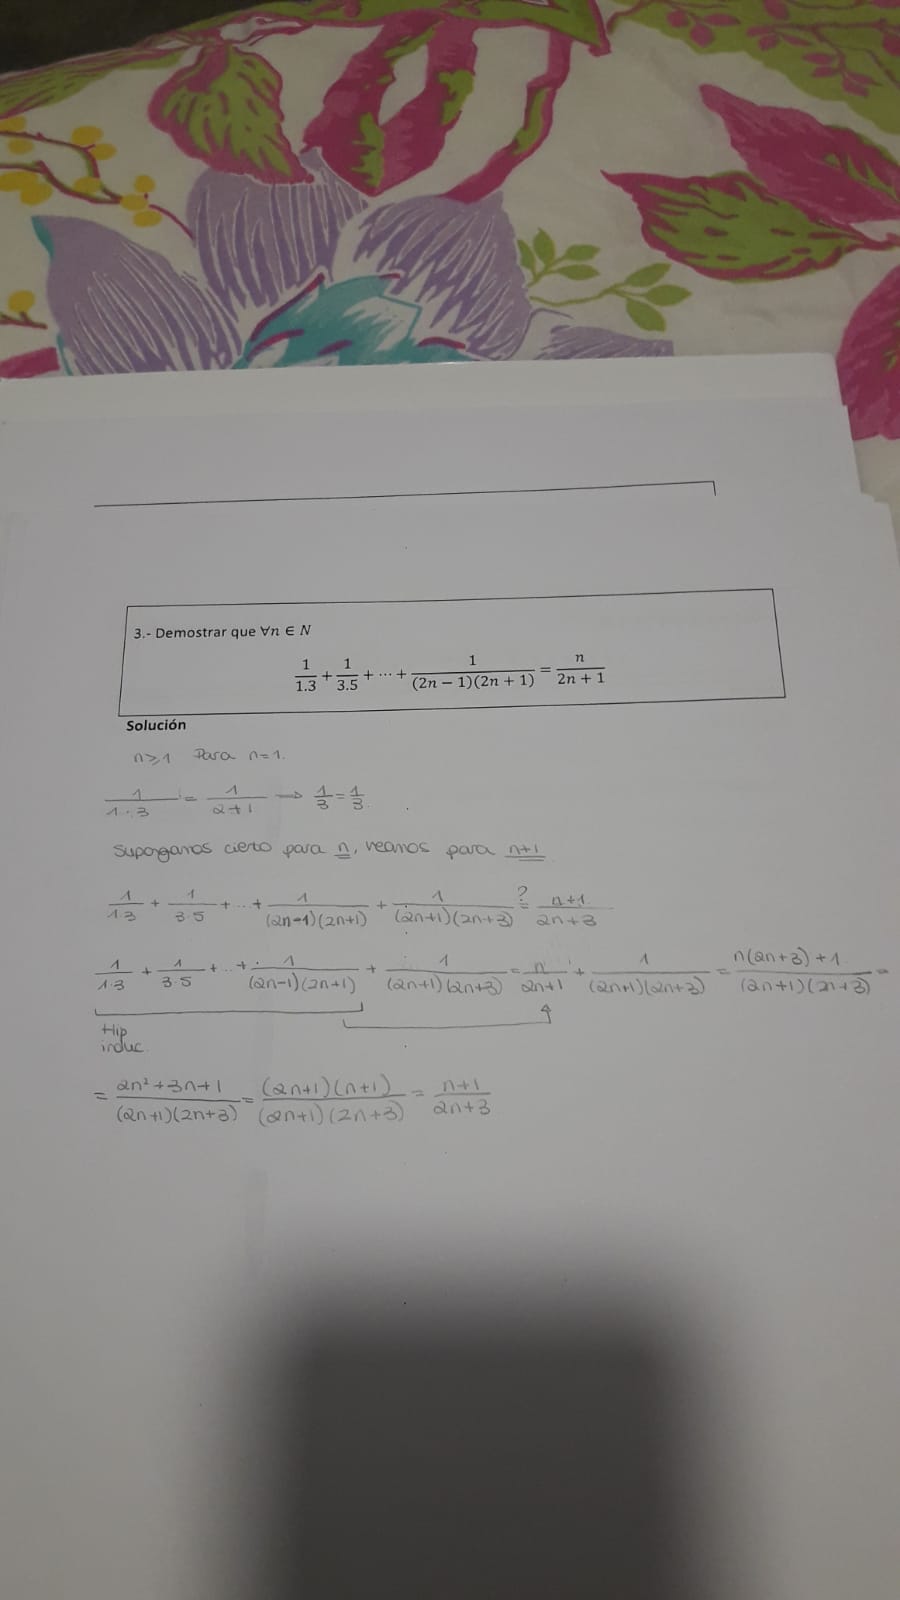 3.- Demostrar que ∀n ∈ N
1/1.3 + 1/3.5 + ⋯ + 1/(2n − 1)(2n + 1) = n/2n + 1
Solución
n≥1 Para n=1.
1/1·3 = 1/2+1 → 1/3 = 1/3
Supongamos cierto para n, veamos para n+1
1/1·3 + 1/3·5 + ... + 1/(2n-1)(2n+1) + 1/(2n+1)(2n+3) ?= n+1/2n+3
1/1·3 + 1/3·5 + ... + 1/(2n-1)(2n+1) + 1/(2n+1)(2n+3) = n/2n+1 + 1/(2n+1)(2n+3) = n(2n+3)+1/(2n+1)(2n+3) =
Hip
induc.
= 2n²+3n+1/(2n+1)(2n+3) = (2n+1)(n+1)/(2n+1)(2n+3) = n+1/2n+3